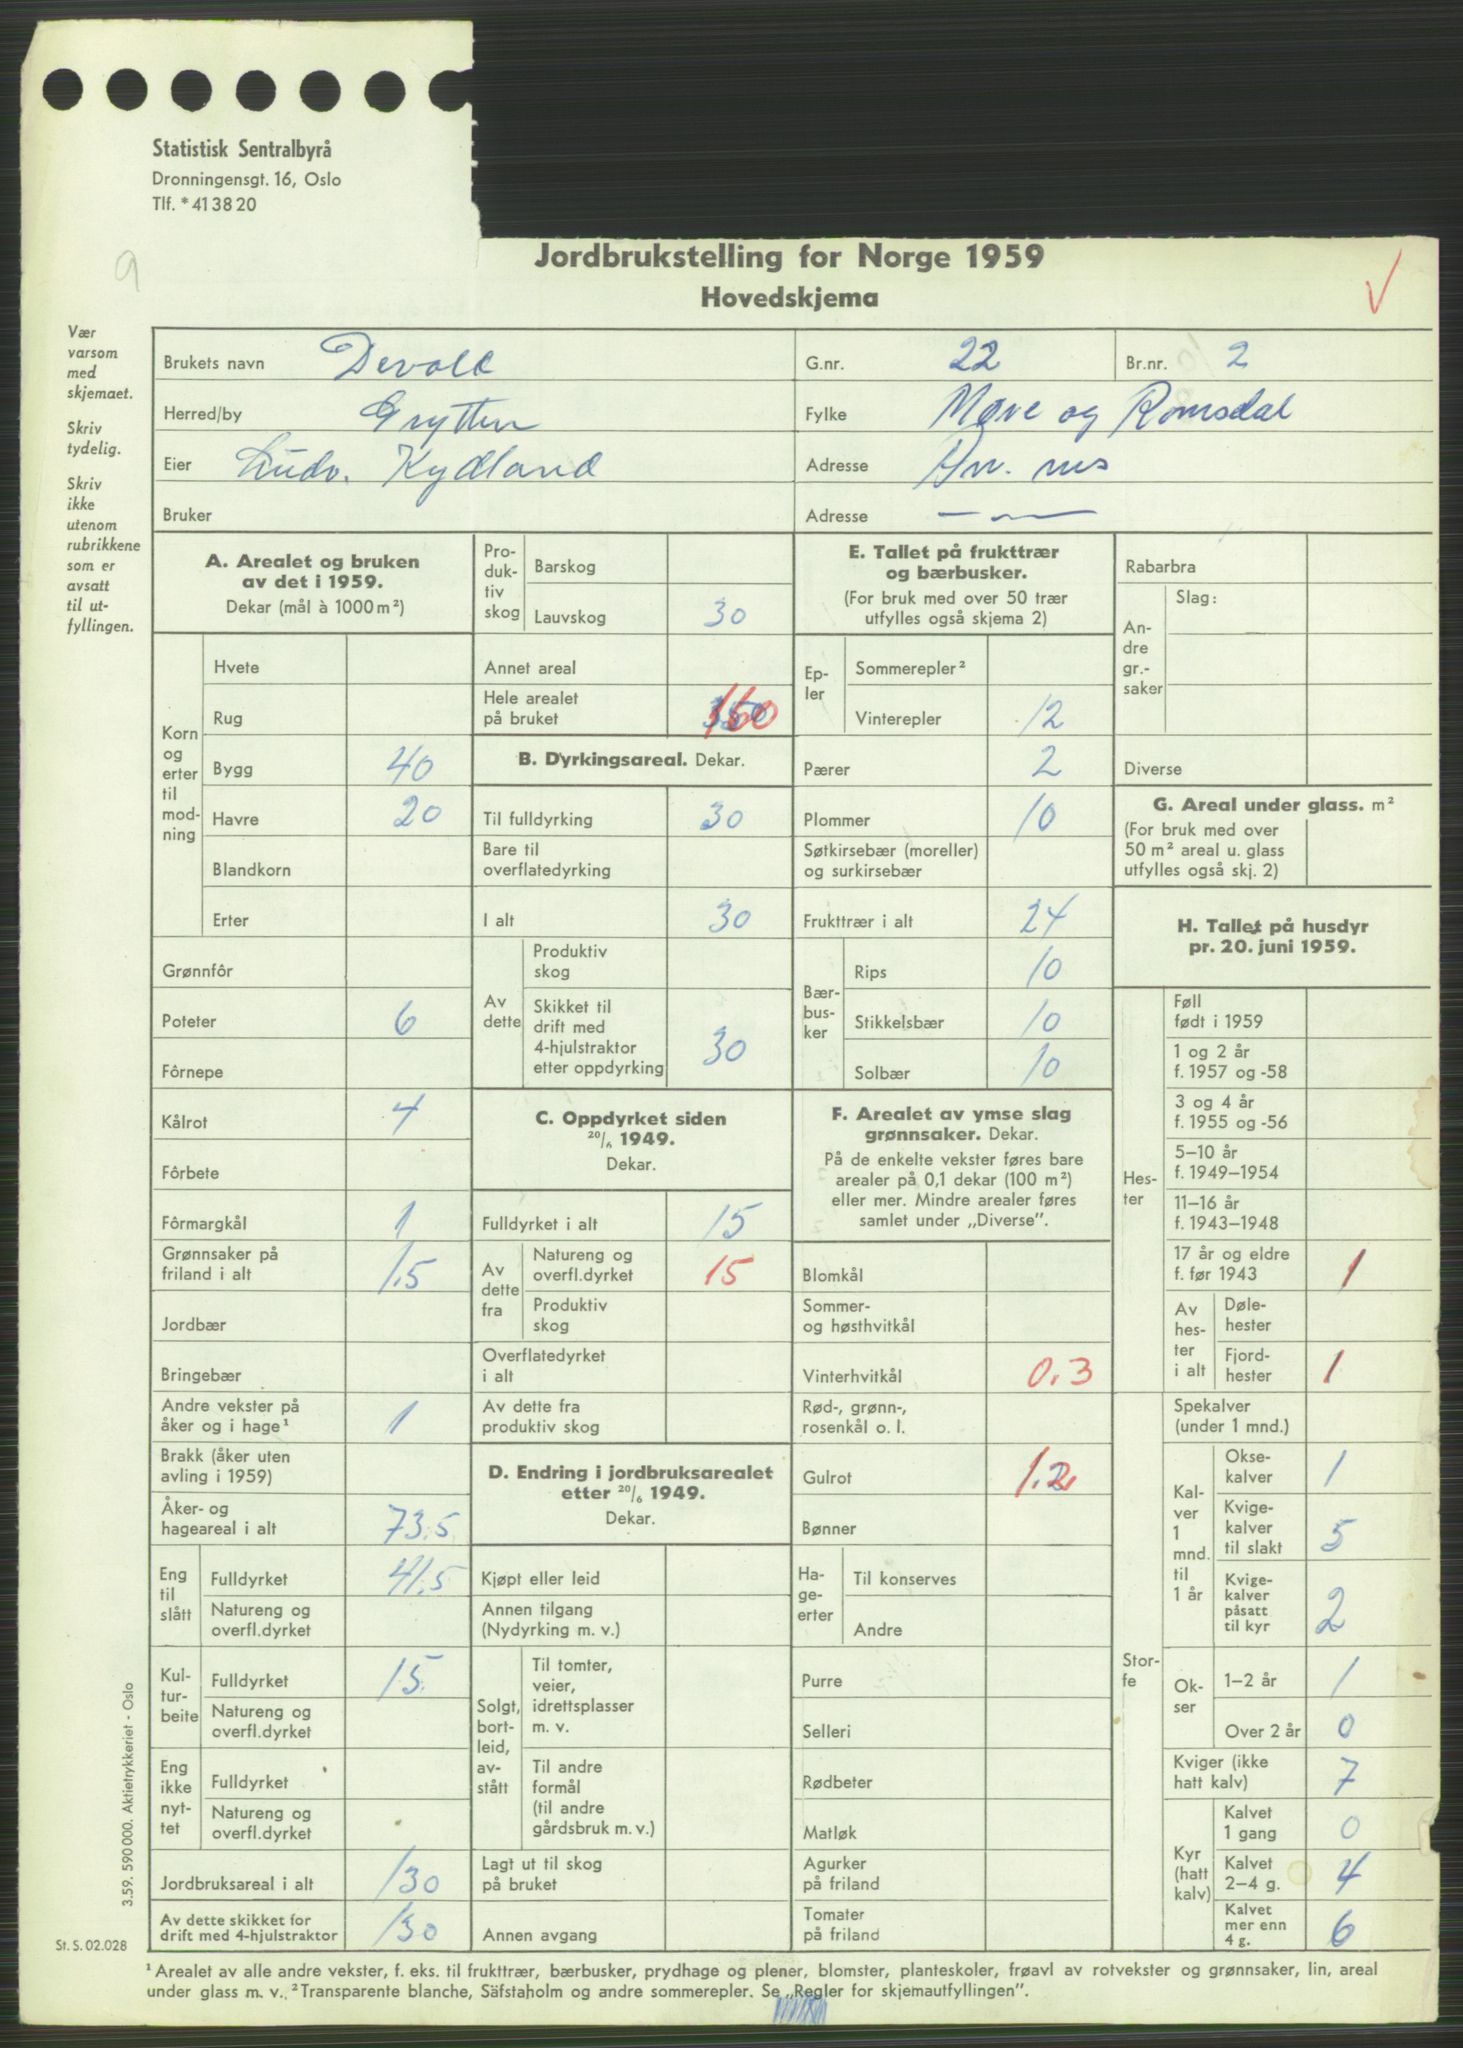 Statistisk Sentralbyrå
Dronningensgt. 16, Oslo
Tlf. * 41 38 20
9
Jordbrukstelling for Norge 1959
Hovedskjema
Vær
varsom
med
skjemaet.
Skriv
tydelig.
Skriv
ikke
utenom
rubrikkene
som er
avsatt
til ut-
fyllingen.
Brukets navn Devold G.nr. 22 Br.nr. 2
Herred/by Grytten Fylke Møre og Romsdal
Eier Ludv. Kydland Adresse
Bruker Adresse
A. Arealet og bruken
av det i 1959.
Dekar (mål à 1000 m²)
Korn
og
erter
til
mod-
ning
Hvete
Rug
Bygg 40
Havre 20
Blandkorn
Erter
Grønnfôr
Poteter 6
Fôrnepe
Kålrot 4
Fôrbete
Fôrmargkål 1
Grønnsaker på
friland i alt 1.5
Jordbær
Bringebær
Andre vekster på
åker og i hage¹ 1
Brakk (åker uten
avling i 1959)
Åker- og
hageareal i alt 73.5
Eng
til
slått
Fulldyrket 41.5
Natureng og
overfl.dyrket
Kul-
tur-
beite
Fulldyrket 15
Natureng og
overfl.dyrket
Eng
ikke
nyt-
tet
Fulldyrket
Natureng og
overfl.dyrket
Jordbruksareal i alt 130
Av dette skikket for
drift med 4-hjulstraktor 130
Pro-
duk-
tiv
skog
Barskog
Lauvskog 30
Annet areal
Hele arealet
på bruket 160
B. Dyrkingsareal. Dekar.
Til fulldyrking 30
Bare til
overflatedyrking
I alt 30
Av
dette
Produktiv
skog
Skikket til
drift med
4-hjulstraktor
etter oppdyrking 30
C. Oppdyrket siden
20/6 1949.
Dekar.
Fulldyrket i alt 15
Av
dette
fra
Natureng og
overfl.dyrket 15
Produktiv
skog
Overflatedyrket
i alt
Av dette fra
produktiv skog
D. Endring i jordbruksarealet
etter 20/6 1949.
Dekar.
Kjøpt eller leid
Annen tilgang
(Nydyrking m. v.)
Solgt,
bort-
leid,
av-
stått
Til tomter,
veier,
idrettsplasser
m. v.
Til andre
formål
(til andre
gårdsbruk m. v.)
Lagt ut til skog
på bruket
Annen avgang
E. Tallet på frukttrær
og bærbusker.
(For bruk med over 50 trær
utfylles også skjema 2)
Ep-
ler
Sommerepler²
Vinterepler 12
Pærer 2
Plommer 10
Søtkirsebær (moreller)
og surkirsebær
Frukttrær i alt 24
Bær-
bus-
ker
Rips 10
Stikkelsbær 10
Solbær 10
F. Arealet av ymse slag
grønnsaker. Dekar.
På de enkelte vekster føres bare
arealer på 0,1 dekar (100 m²)
eller mer. Mindre arealer føres
samlet under „Diverse”.
Blomkål
Sommer-
og høsthvitkål
Vinterhvitkål 0.3
Rød-, grønn-,
rosenkål o. l.
Gulrot 1.2
Bønner
Ha-
ge-
erter
Til konserves
Andre
Purre
Selleri
Rødbeter
Matløk
Agurker
på friland
Tomater
på friland
Rabarbra
An-
dre
gr.-
saker
Slag:
Diverse
G. Areal under glass. m²
(For bruk med over
50 m² areal u. glass
utfylles også skj. 2)
H. Tallet på husdyr
pr. 20. juni 1959.
Hes-
ter
Føll
født i 1959
1 og 2 år
f. 1957 og -58
3 og 4 år
f. 1955 og -56
5–10 år
f. 1949–1954
11–16 år
f. 1943–1948
17 år og eldre
f. før 1943 1
Av
hes-
ter
i alt
Døle-
hester
Fjord-
hester 1
Stor-
fe
Spekalver
(under 1 mnd.)
Kal-
ver
1
mnd.
til
1 år
Okse-
kalver 1
Kvige-
kalver
til slakt 5
Kvige-
kalver
påsatt
til kyr 2
Ok-
ser
1–2 år 1
Over 2 år 0
Kviger (ikke
hatt kalv) 7
Kyr
(hatt
kalv)
Kalvet
1 gang 0
Kalvet
2–4 g. 4
Kalvet
mer enn
4 g. 6
3.59. 590 000. Aktietrykkeriet - Oslo
St. S. 02.028
¹ Arealet av alle andre vekster, f. eks. til frukttrær, bærbusker, prydhage og plener, blomster, planteskoler, frøavl av rotvekster og grønnsaker, lin, areal
under glass m. v. ² Transparente blanche, Säfstaholm og andre sommerepler. Se „Regler for skjemautfyllingen”.